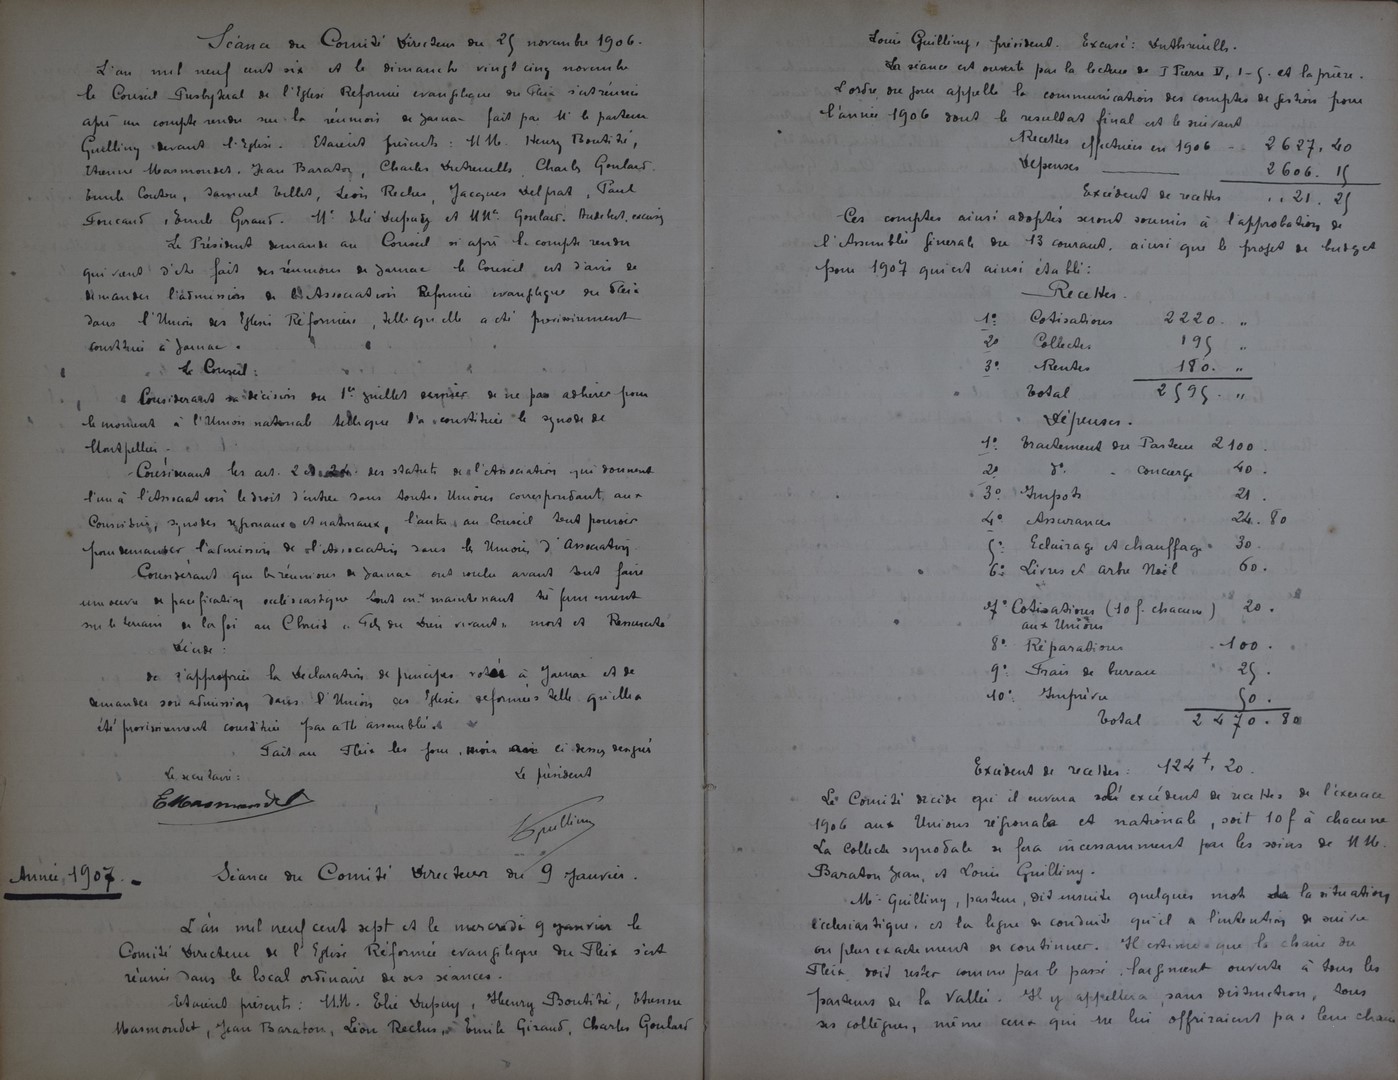 Séance du Comité Directeur du 25 novembre 1906.
L'an mil neuf cent six et le dimanche vingt cinq novembre
le Conseil Presbytéral de l'Eglise Réformée evangelique du Fleix s'est reunie
après un compte rendu sur la réunion de Jarnac fait par Mr le pasteur
Guilliny devant l'Eglise. Etaient présents : MM. Henry Boutité,
Etienne Masmondet, Jean Baraton, Charles Dutreuilh, Charles Goulard
Emile Couton, Samuel Tellet, Léon Reclus, Jacques Delprat, Paul
Foucaud, Emile Giraud. Mr Elie Dupuy et MM. Goulard. Audebert, excusés
Le Président demande au Conseil si après le compte rendu
qui vient d'etre fait des réunions de Jarnac le Conseil est d'avis de
demander l'admission de l'Association Reformée evangelique du Fleix
dans l'Union des Eglises Réformées, telle qu'elle a été provisoirement
constituée à Jarnac.
Le Conseil :
Considerant sa décision du 1er juillet dernier de ne pas adhérer pour
le moment à l'Union national telle que l'a constituée le synode de
Montpellier.
Considerant les art. 2 et 24 des statuts de l'Association qui donnent
l'un à l'Association le droit d'entrer dans toutes Unions correspondant aux
Consistoires, synodes regionaux et nationaux, l'autre au Conseil tout pouvoir
pour demander l'admission de l'Association dans les Unions d'Association
Considérant que les réunions de Jarnac ont voulu avant tout faire
une œuvre de pacification ecclésiastique tout en maintenant très fermement
sur le terrain de la foi au Christ « Fils du Dieu vivant » mort et Ressuscité
Décide :
de s'approprier la Declaration de principes votée à Jarnac et de
demander son admission dans l'Union des Eglises reformées telle qu'elle a
été provisoirement constituée par cette assemblée.
Fait au Fleix les jour, mois et an ci dessus désignés
Le secrétaire : Le président
EMasmondet
Guilliny
Année 1907. Séance du Comité Directeur du 9 Janvier.
L'an mil neuf cent sept et le mercredi 9 janvier le
Comité Directeur de l'Eglise Réformée evangelique du Fleix s'est
réuni dans le local ordinaire de ses séances.
Etaient présents : MM. Elie Dupuy, Henry Boutité, Etienne
Masmondet, Jean Baraton, Léon Reclus, Emile Giraud, Charles Goulard
Louis Guilliny, président. Excusé : Dutreuilh.
La séance est ouverte par la lecture de I Pierre IV, 1-5. et la prière.
L'ordre du jour appelle la communication des comptes de gestion pour
l'année 1906 dont le resultat final est le suivant
Recettes effectuées en 1906 .. 2627,40
Dépenses ——— 2606.15
Excédent de recettes .. 21.25
Ces comptes ainsi adoptés seront soumis à l'approbation de
l'Assemblée générale du 13 courant, ainsi que le projet de budget
pour 1907 qui est ainsi établi :
Recettes.
1º Cotisations 2220. "
2º Collectes 195 "
3º Rentes 180. "
Total 2595. "
Dépenses.
1º Traitement du Pasteur 2100.
2º dº - concierge 40.
3º Impots 21.
4º Assurances 24.80
5º Eclairage et chauffage 30.
6º Livres et arbre Noël 60.
7º Cotisations (10 f. chacune) 20.
aux Unions
8º Réparations 100.
9º Frais de bureau 25.
10º Imprévu 50.
Total 2470.80
Excédent de recettes : 124f,20.
Le Comité décide qu'il enverra sur l'excédent de recettes de l'exercice
1906 aux Unions régionale et nationale, soit 10 f à chacune
La Collecte synodale se fera incessamment par les soins de MM.
Baraton Jean, et Louis Guilliny.
Mr Guilliny, pasteur, dit ensuite quelques mots de la situation
ecclésiastique et la ligne de conduite qu'il a l'intention de suivre
ou plus exactement de continuer. Il estime que la chaire du
Fleix doit rester comme par le passé, largement ouverte à tous les
pasteurs de la Vallée. Il y appellera, sans distinction, tous
ses collègues, même ceux qui ne lui offriraient pas leur chaire